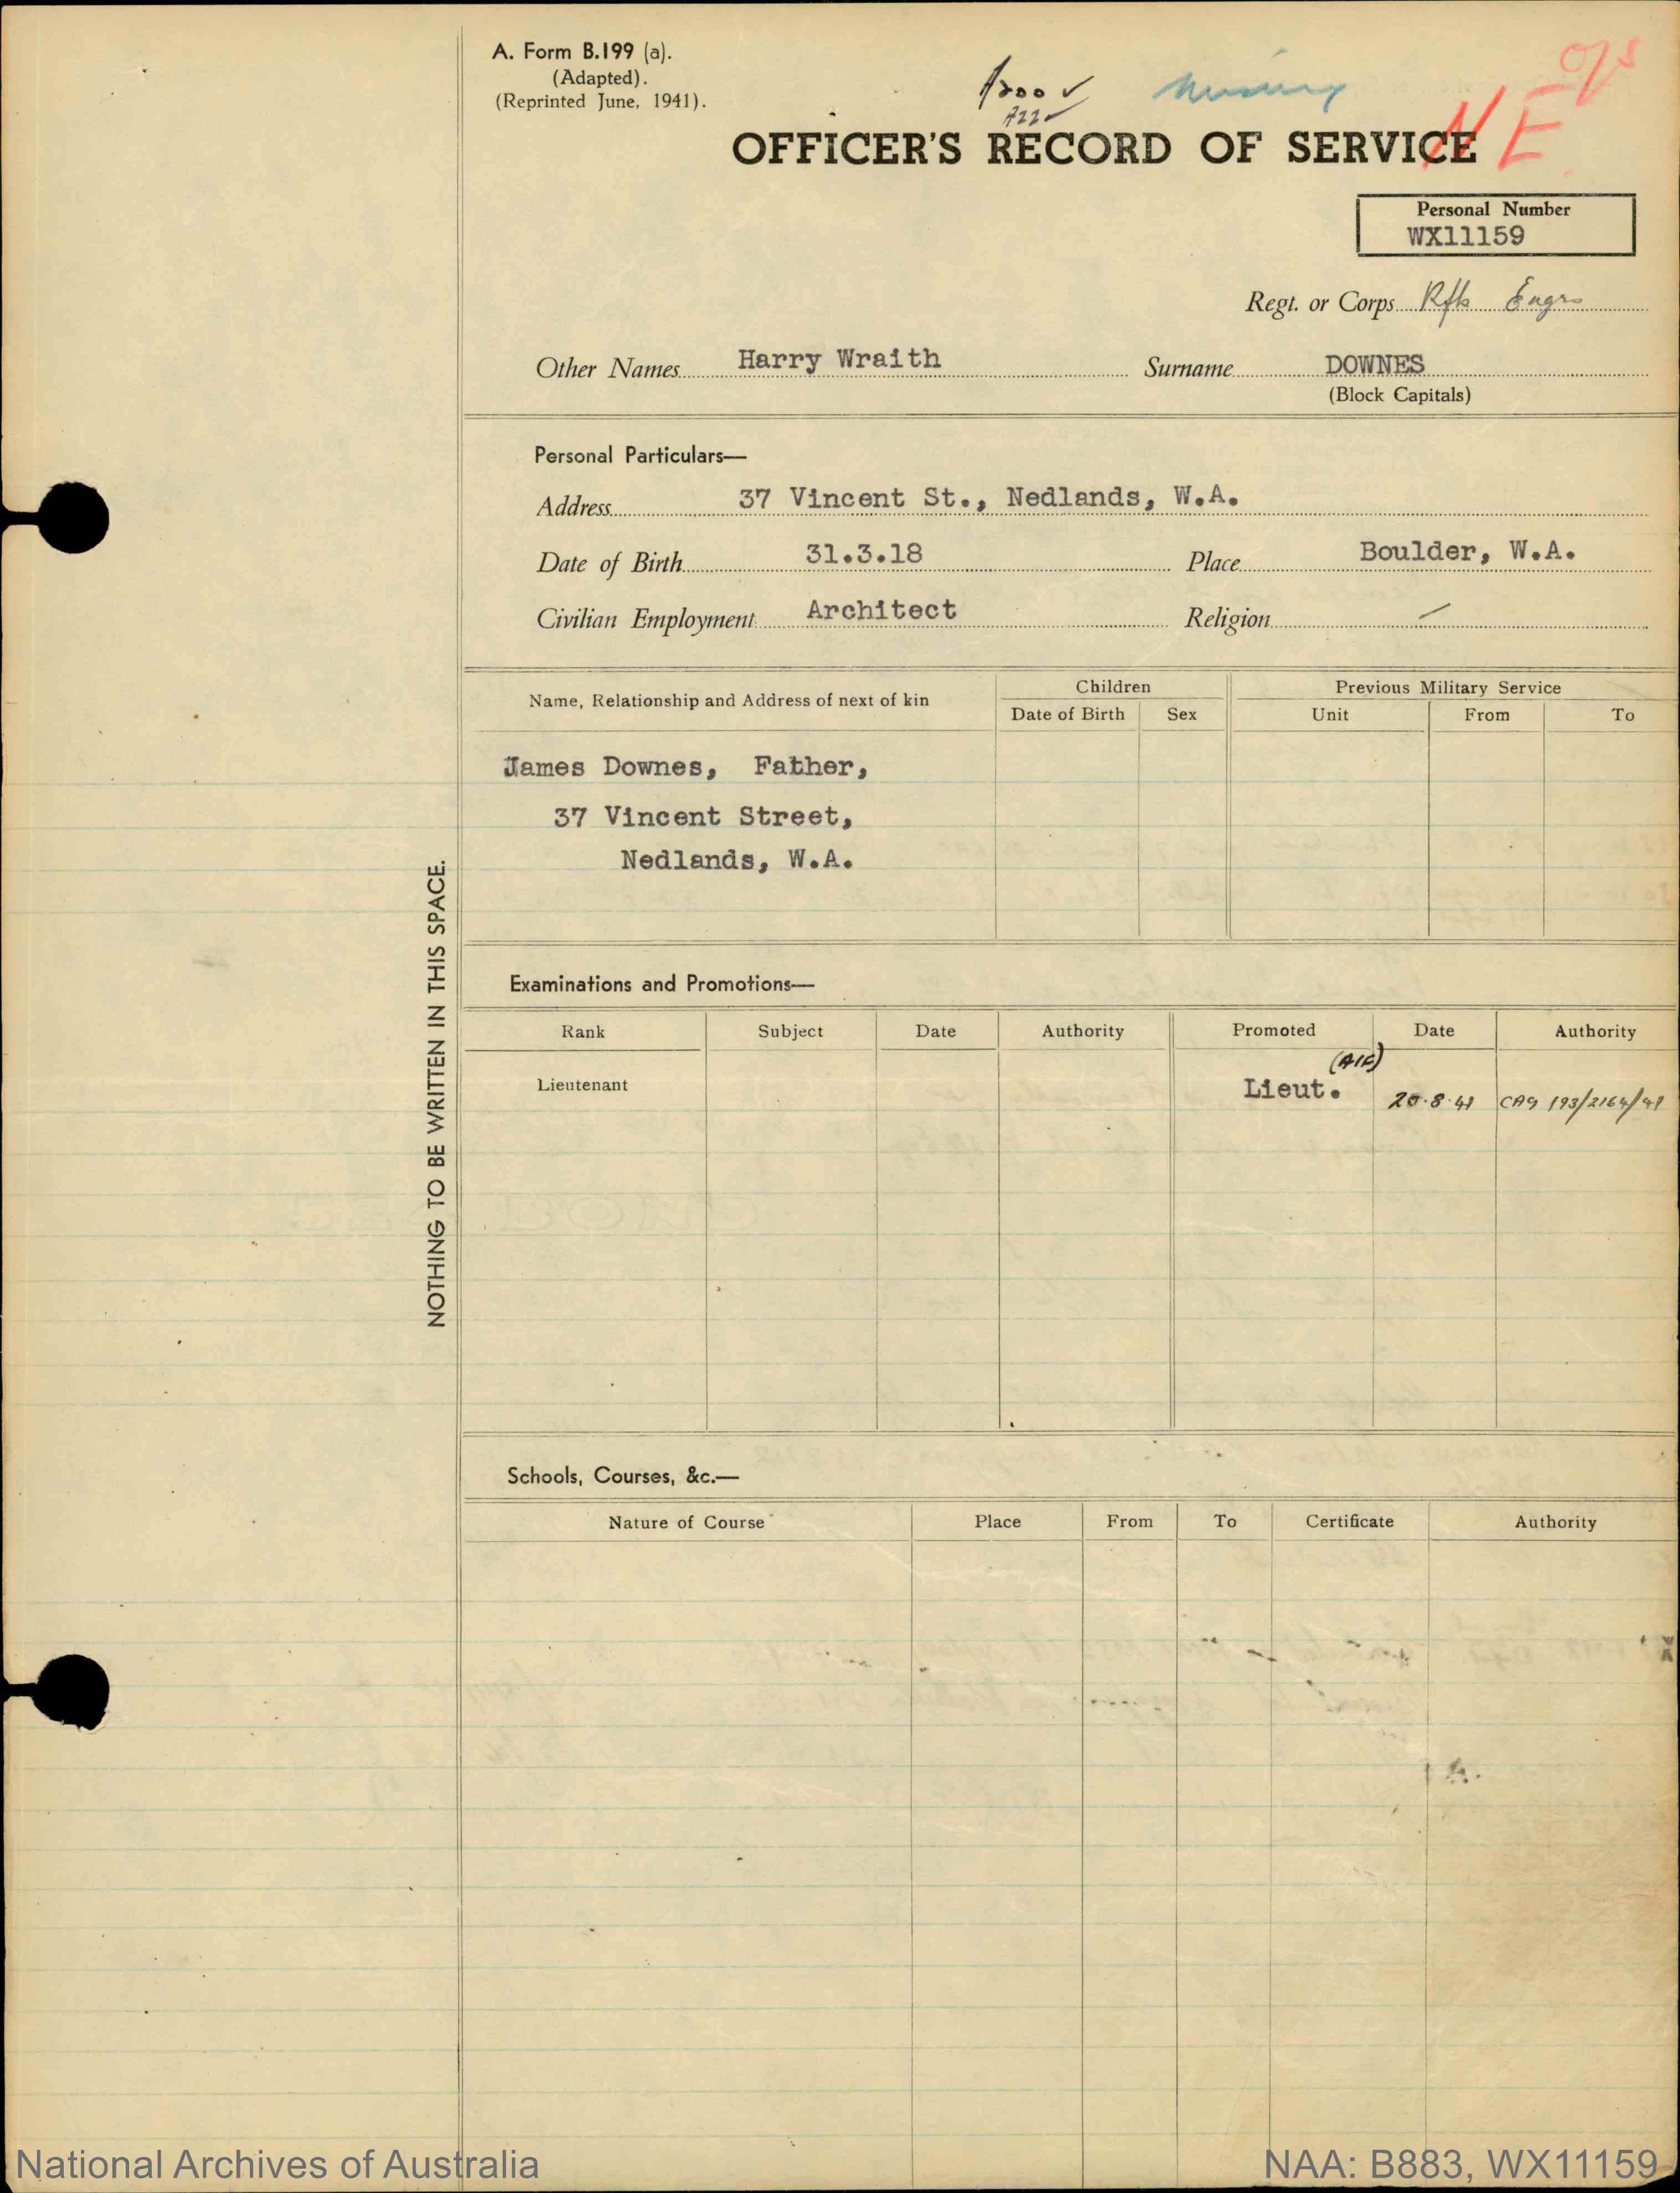 A. Form B.199 (a).
(Adapted).
(Reprinted June, 1941).
N E
OFFICER'S RECORD OF SERVICE
Personal Number
WX11159
Regt. or Corps Rfts Engrs
Other Names Harry Wraith Surname DOWNES
(Block Capitals)
Personal Particulars—
Address 37 Vincent St., Nedlands, W.A.
Date of Birth 31.3.18 Place Boulder, W.A.
Civilian Employment Architect Religion
Name, Relationship and Address of next of kin Children Previous Military Service
Date of Birth Sex Unit From To
James Downes, Father,
37 Vincent Street,
Nedlands, W.A.
Examinations and Promotions—
Rank Subject Date Authority Promoted Date Authority
(AIF)
Lieutenant Lieut. 20.8.41 CAG 193/2164/41
Schools, Courses, &c.—
Nature of Course Place From To Certificate Authority
NOTHING TO BE WRITTEN IN THIS SPACE.
National Archives of Australia NAA: B883, WX11159